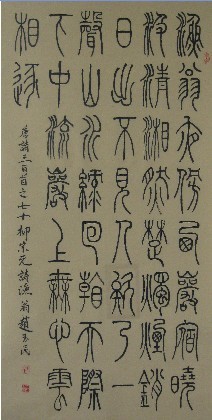 漁翁夜傍西巖宿曉
汲清湘然楚燭煙銷
日出不見人欸乃一
聲山水綠回看天際
下中流巖上無心雲
相逐
唐詩三百首之七十柳宗元詩漁翁趙玉民